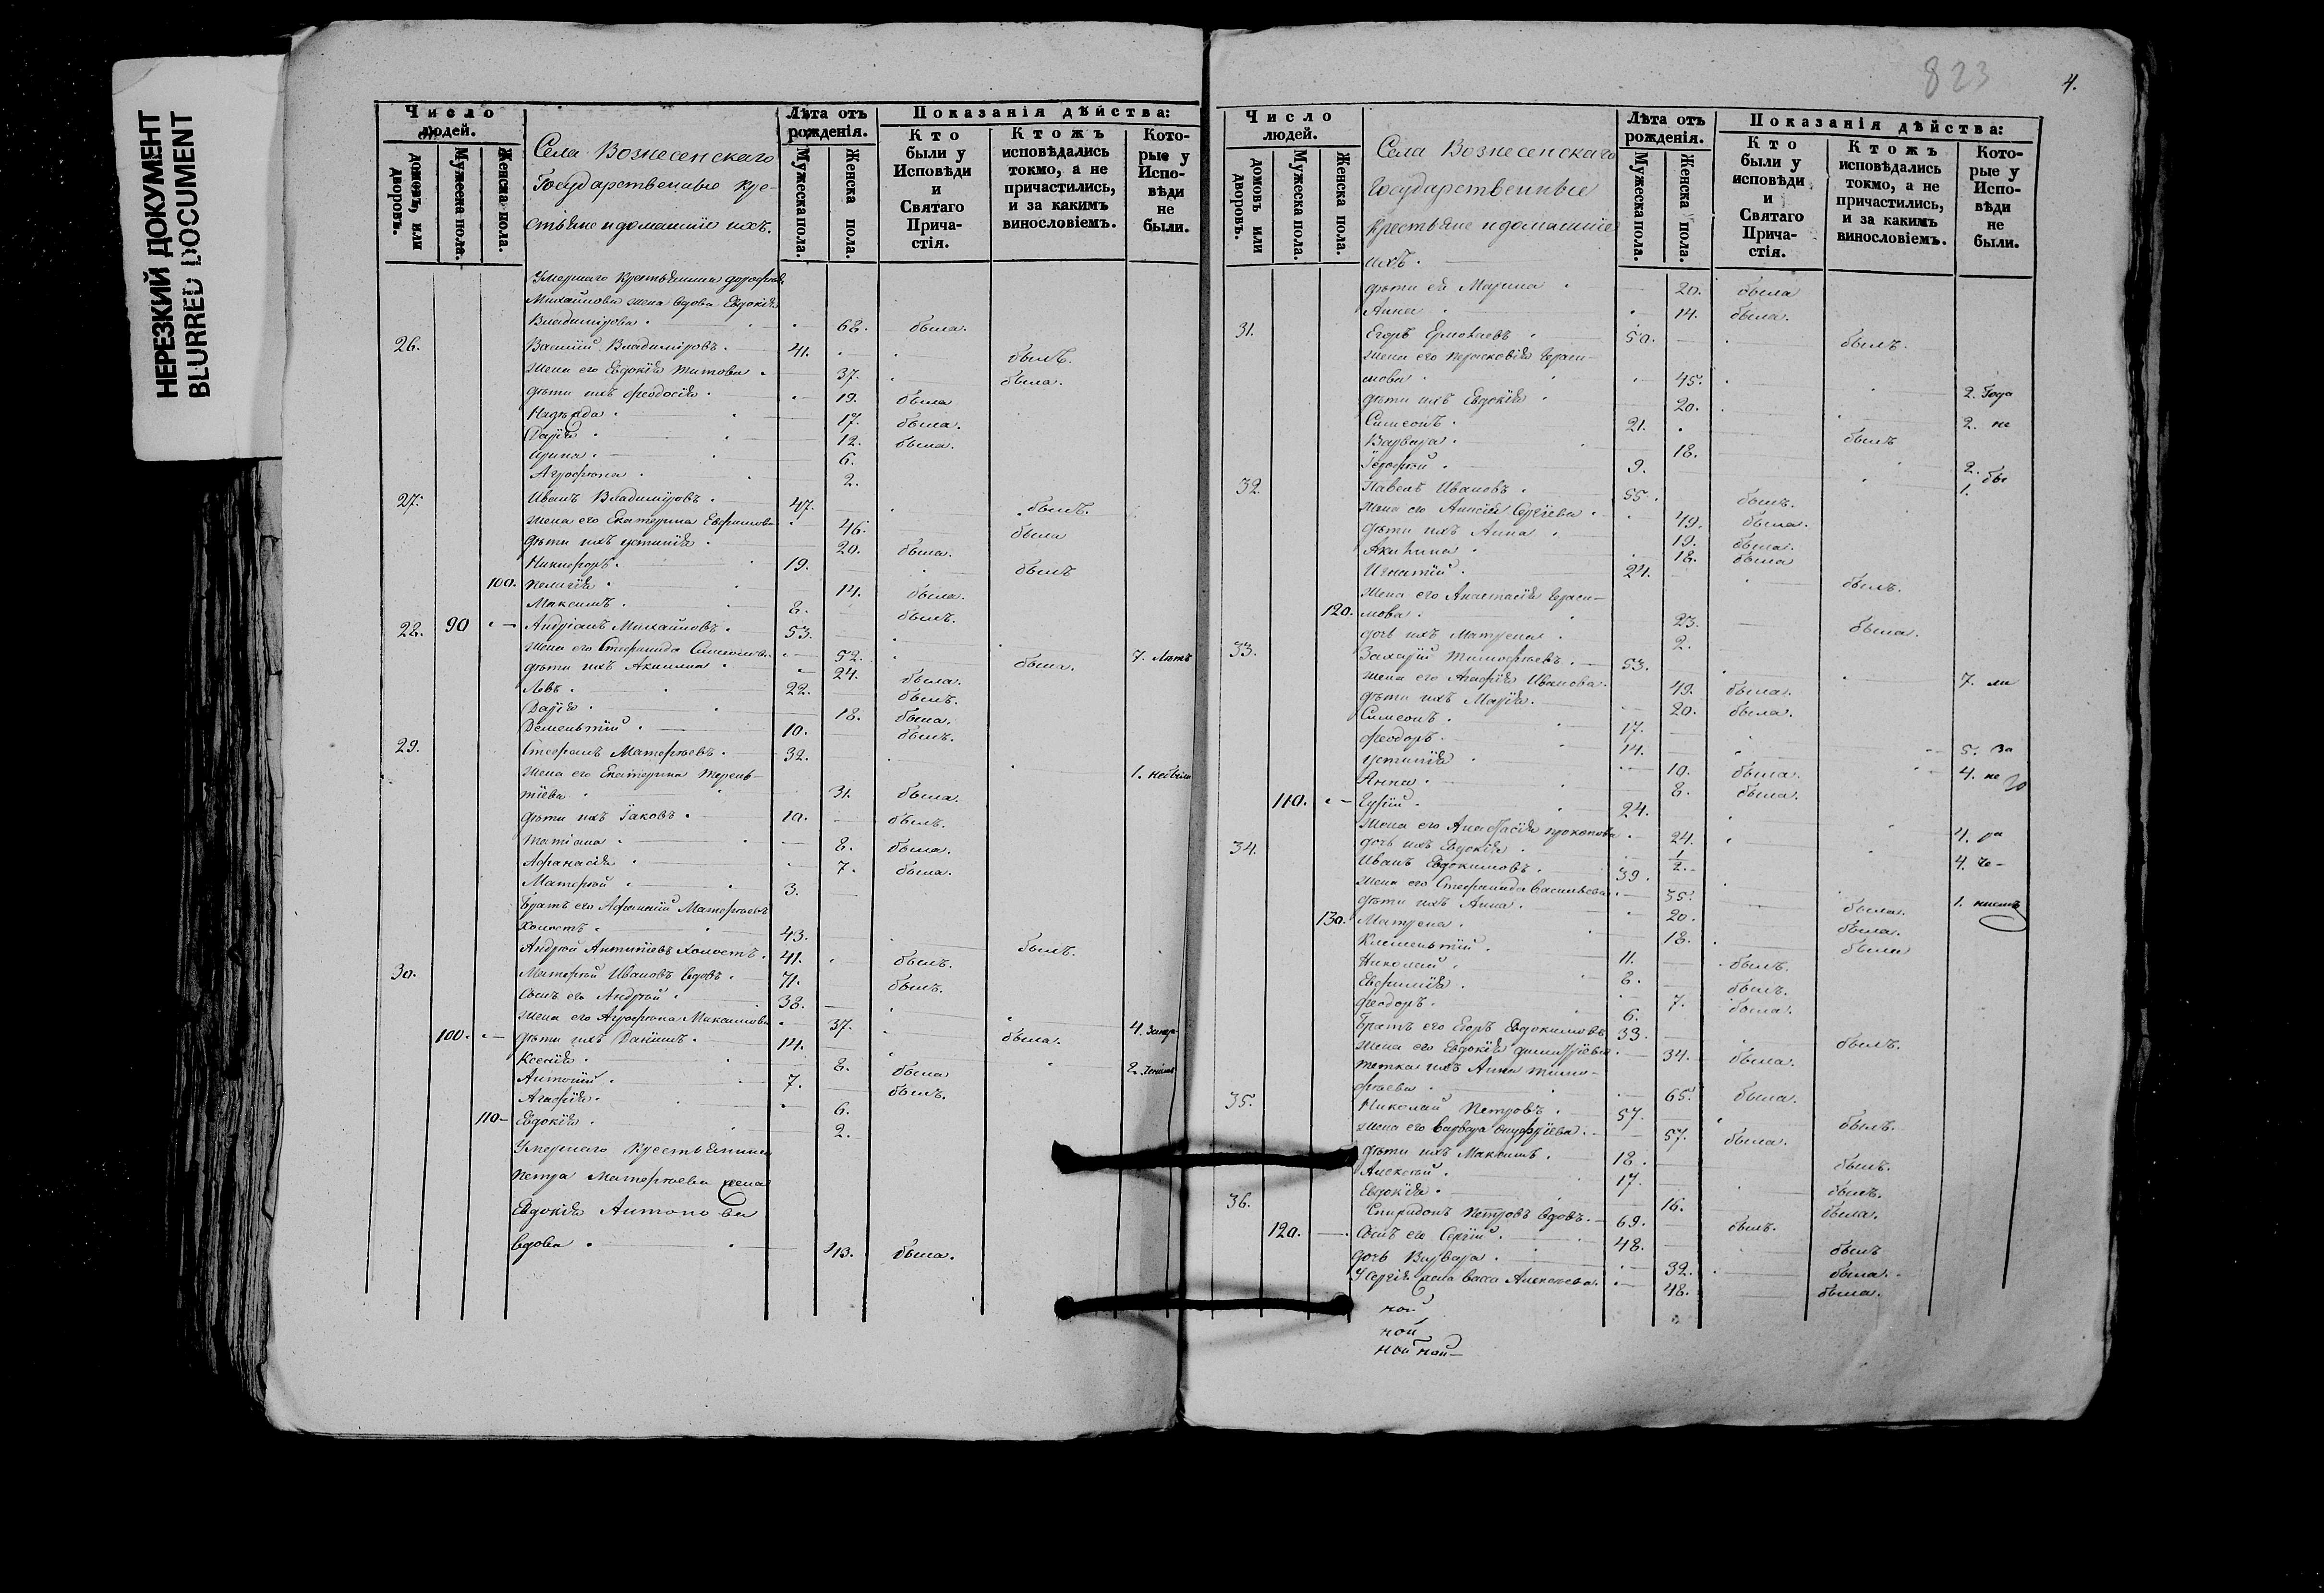 НЕРЕЗКИЙ ДОКУМЕНТ
BLURRED DOCUMENT
Число людей.
домовъ, или дворовъ.
Мужеска пола.
Женска пола.
Села Вознесенскаго
Государственные кре-
стьяне и домашніе ихъ.
Лѣта отъ рожденія.
Мужеска пола.
Женска пола.
Показанія дѣйства:
Кто были у Исповѣди и Святаго Прича-стія.
Ктожъ исповѣдались токмо, а не причастились, и за какимъ винословіемъ.
Кото-рые у Испо-вѣди не были.
Умершаго крестьянина
Михайлова жена вдова Евдокія
Владимірова 68. была.
26. Василій Владиміровъ 41. былъ.
жена его Евдокія Титова 37. была.
дѣти ихъ Феодосія 19. была
Надежда 17. была.
Дарія 12. была.
Ирина 6.
Агрофена 2.
27. Иванъ Владиміровъ 47. былъ.
жена его Екатерина Ефимова 46. была
дѣти ихъ Устинія 20. была.
Никифоръ 19. былъ
100. Пелагія 14. была.
Максимъ 8. былъ.
28. 90 Андріанъ Михайловъ 53. 7. лѣтъ
жена его Стефанида 52. была.
дѣти ихъ Акилина 24. была.
Левъ 22. былъ.
Дарія 18. была.
Дементій 10. былъ.
29. Стефанъ Матфѣевъ 32. 1. небылъ
жена его Екатерина Терень-
тіева 31. была.
дѣти ихъ Іаковъ 10. былъ.
Татіана 8. была.
Афанасія 7. была.
Матфей 3.
братъ его Матфѣевъ
холостъ 43. былъ.
Андрей Антипіевъ холостъ 41. былъ.
30. Матфей Ивановъ вдовъ 71. былъ.
Сынъ его Андрей 38. 4.
жена его Агрофена Максимова 37. была.
100. дѣти ихъ Даніилъ 14. 2.
Ксенія 8. была
Антоній 7. былъ.
Агафія 6.
110 Евдокія 2.
Умершаго крестьянина
Петра Матфѣева жена
Евдокія Антонова
вдова 43. была.
823
4.
Число людей.
домовъ или дворовъ.
Мужеска пола.
Женска пола.
Села Вознесенскаго
Государственные
крестьяне и домашніе
ихъ.
Лѣта отъ рожденія.
Мужеска пола.
Женска пола.
Показанія дѣйства:
Кто были у исповѣди и Святаго Прича-стія.
Ктожъ исповѣдались токмо, а не причастились, и за какимъ винословіемъ.
Кото-рые у Испо-вѣди не были.
дѣти ея Марина 20. была
Анна 14. была.
31. Егоръ Ермолаевъ 50. былъ.
жена его Прасковія Гераси-
мова 45. 2. Года
дѣти ихъ Евдокія 20. 2. не
Симеонъ 21. былъ
Варвара 18. 2. бы
9. 1.
32. Павелъ Ивановъ 55. былъ.
жена его Сергіева 49. была.
дѣти ихъ Анна 19. была.
Акилина 18. была
Игнатій 24. былъ.
жена его Анастасія Гераси-
120. мова 23. была.
дочь ихъ Матрена 2.
33. Захарій Тимофѣевъ 53. 7.
жена его Агафія Иванова 49. была.
дѣти ихъ Марія 20. была.
Симеонъ 17. 5. за
Феодоръ 14. 4. не
Устинія 10. была.
Анна 8. была.
110. Гурій 24. 4. ра
жена его Анастасія Прокопова 24. 4. че-
дочь ихъ Евдокія 1/2.
34. Иванъ Евдокимовъ 39. 1. ніемъ
жена его Стефанида Васильева 35. была.
дѣти ихъ Анна 20. была.
130. Матрена 18. была
Клементій 11. былъ.
Николай 8. былъ.
Евфимія 7. была.
Феодоръ 6.
братъ его Егоръ Евдокимовъ 33. былъ.
жена его Евдокія Димитріева 34. была.
тетка ихъ Анна Тимо-
фѣева 65. была.
35. Николай Петровъ 57. былъ.
жена его Варвара Онуфріева 57. была.
дѣти ихъ Максимъ 18. былъ.
Алексей 17. былъ.
Евдокія 16. была.
36. Спиридонъ Петровъ вдовъ 69. былъ.
120. Сынъ его Сергій 48. былъ
дочь Варвара 32. была.
У Сергія жена Васса Алексеева 48. была.
ной
ной
ной ной